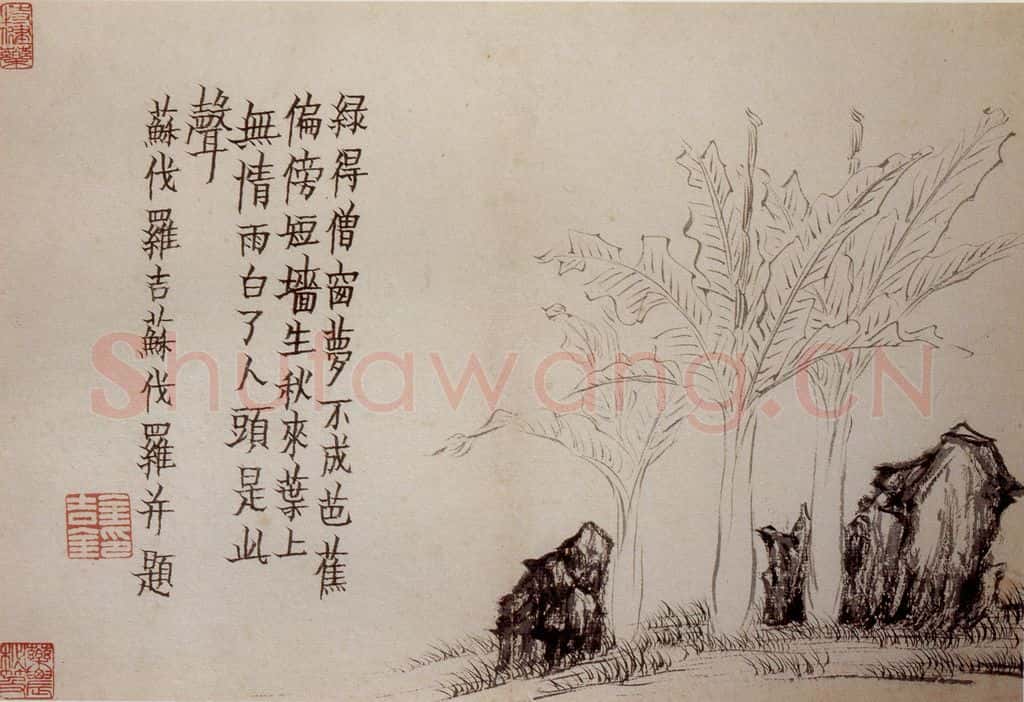 綠得僧窗夢不成芭蕉
偏傍短墻生秋來葉上
無情雨白了人頭是此
聲
蘇伐羅吉蘇伐羅并題
金吉金印
Shufawang.CN